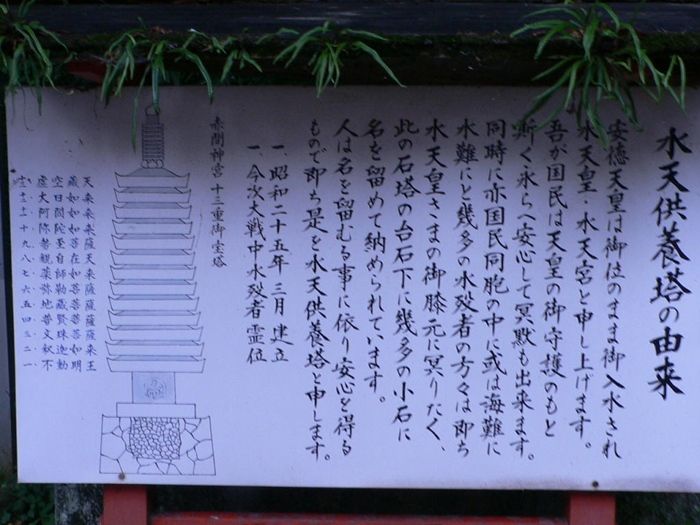 水天供養塔の由来
安徳天皇は御位のまま御入水され
水天皇・水天宮と申し上げます。
吾が国民は天皇の御守護のもと
斯く永らへ安心して冥黙も出来ます。
同時に亦国民同胞の中に或は海難に
水難にと幾多の水歿者の方々は即ち
水天皇さまの御膝元に冥りたく、
此の石塔の台石下に幾多の小石に
名を留めて納められています。
人は名を留むる事に依り安心を得る
もので即ち是を水天供養塔と申します。
一、昭和二十五年三月建立
一、今次大戦中水歿者霊位
赤間神宮 十三重御堂塔
十三.虚空蔵天
十二.大日如来
十一.阿閦如来
十.弥陀如来
九.勢至菩薩
八.観自在天
七.薬師如来
六.弥勒菩薩
五.地蔵菩薩
四.普賢菩薩
三.文珠菩薩
二.釈迦如来
一.不動明王